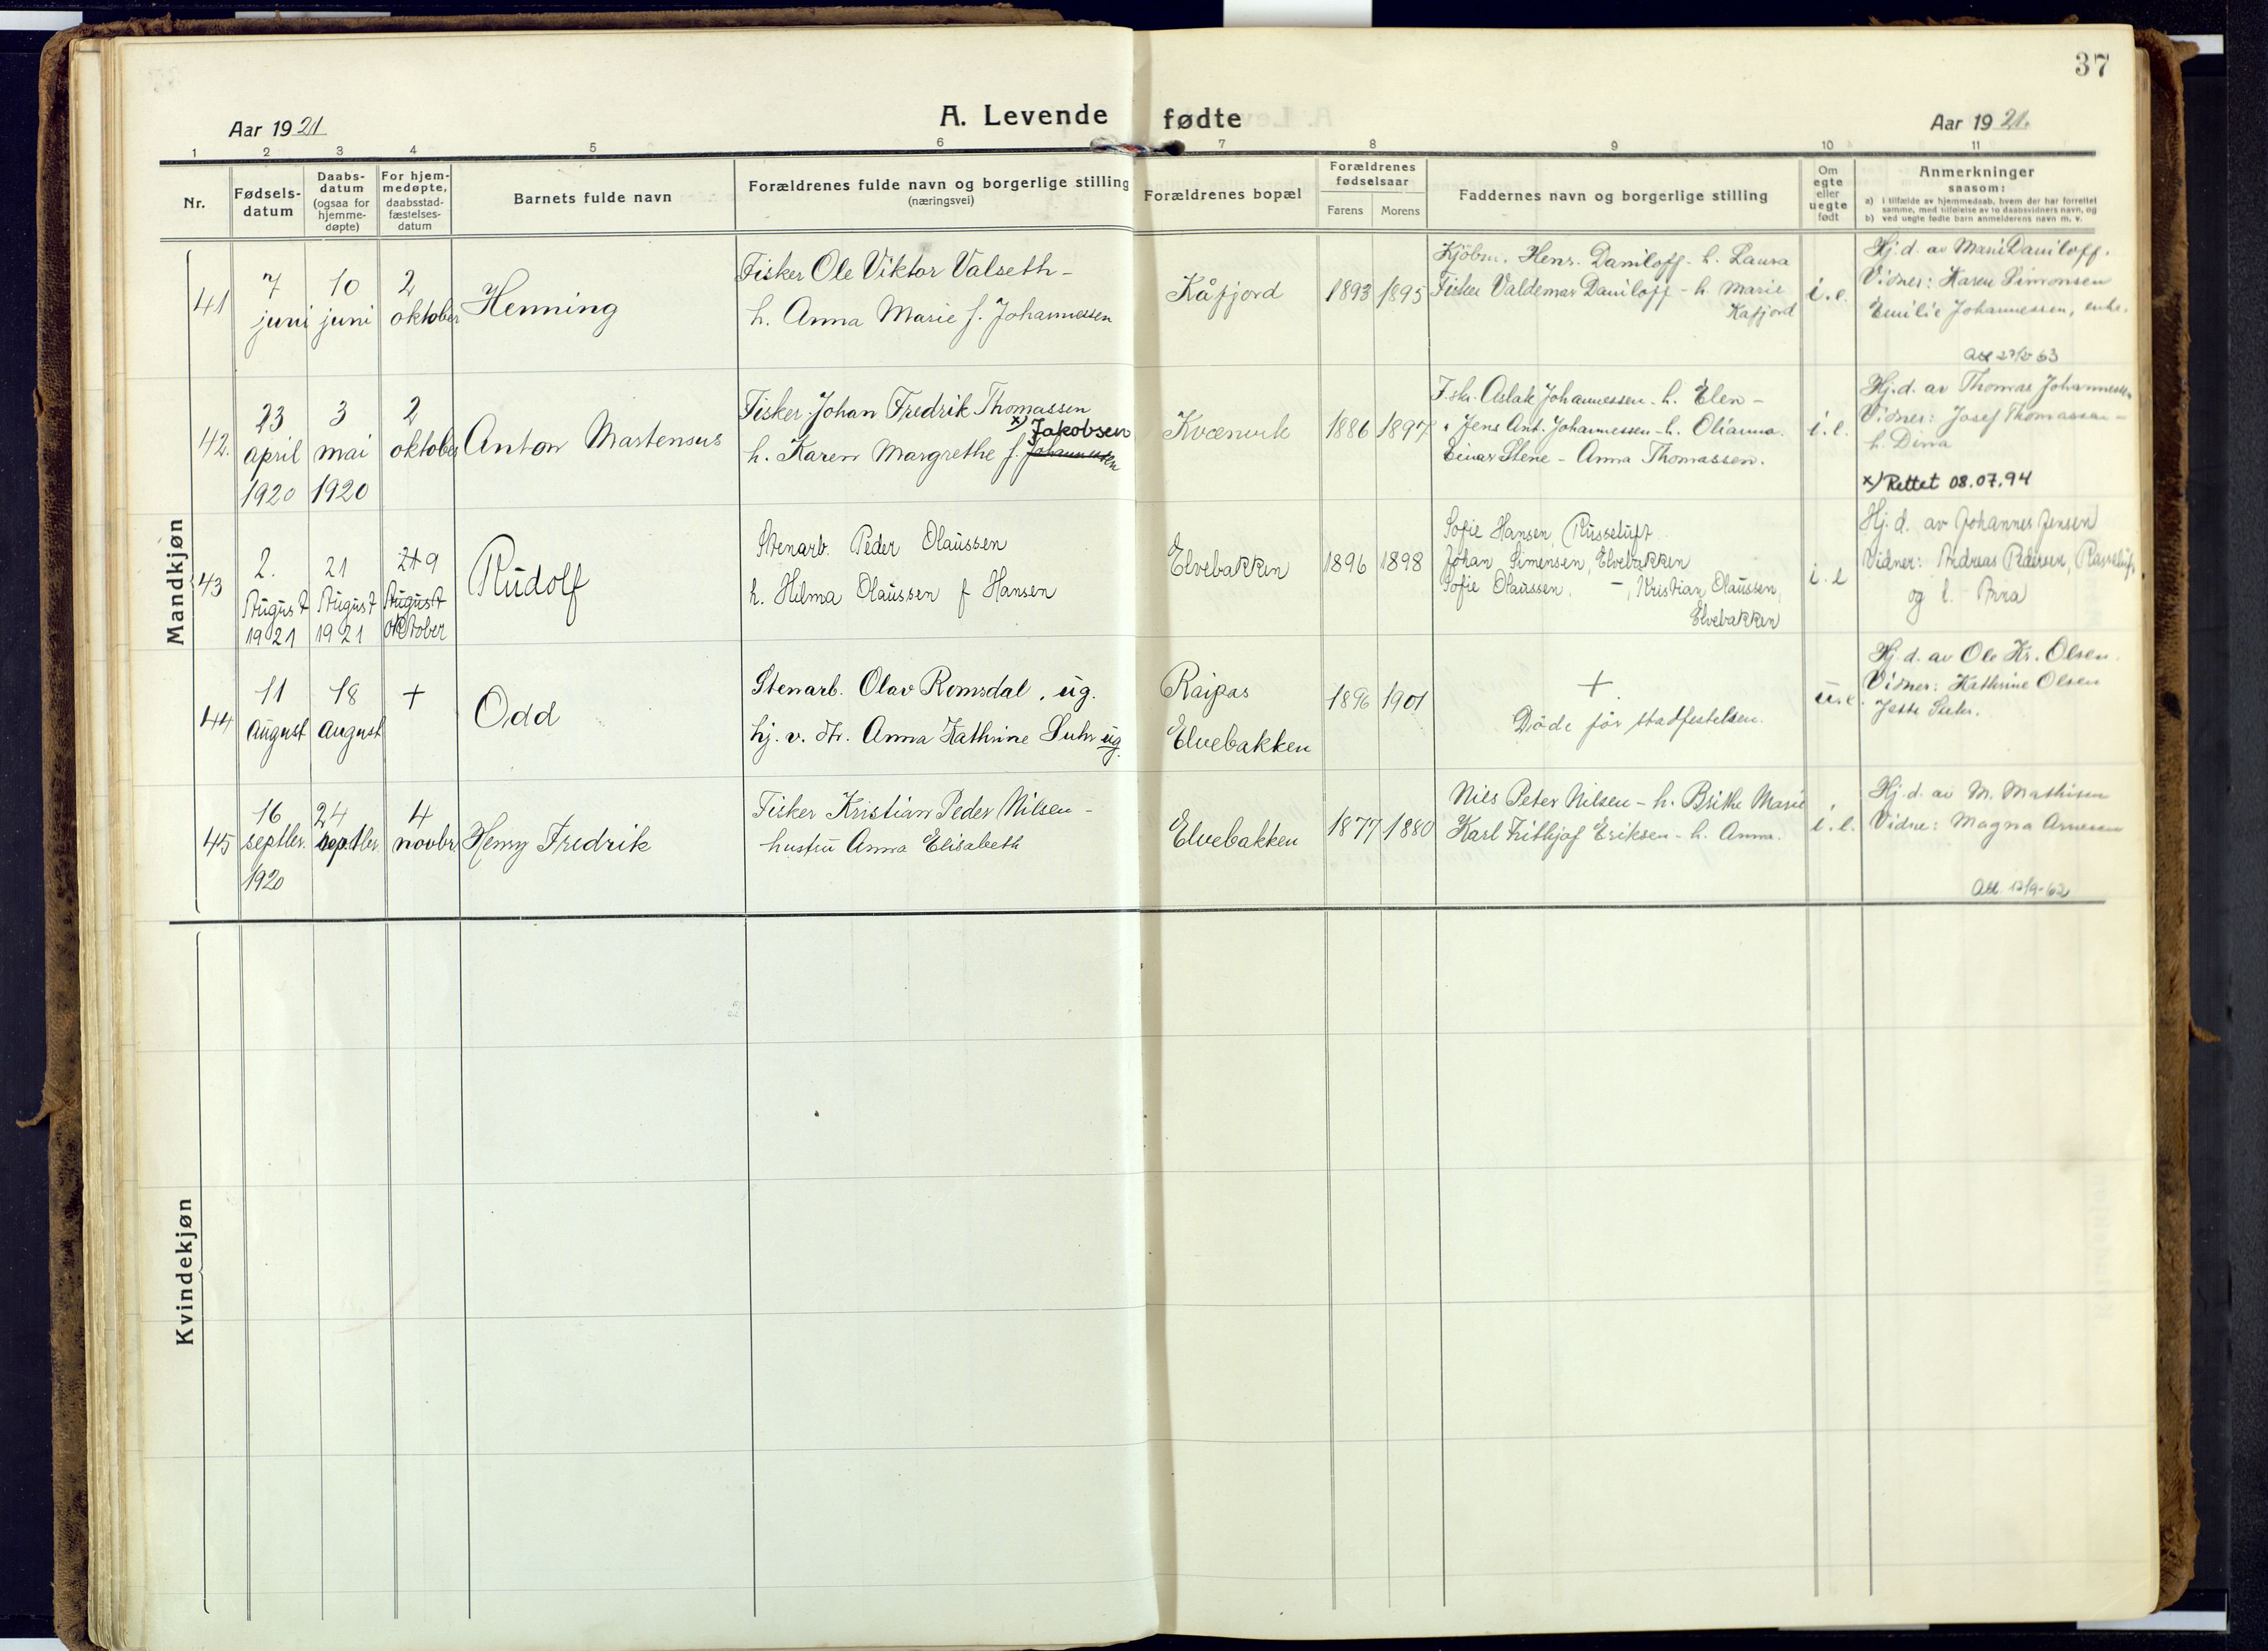 37
Aar 1921
A. Levende fødte
Aar 1921.
1 2 3 4 5 6 7 8 9 10 11
Nr.
Fødsels-
datum
Daabs-
datum
(ogsaa for
hjemme-
døpte)
For hjem-
medøpte,
daabsstad-
fæstelses-
datum
Barnets fulde navn
Forældrenes fulde navn og borgerlige stilling
(næringsvei)
Forældrenes bopæl
Forældrenes
fødselsaar
Farens Morens
Faddernes navn og borgerlige stilling
Om
egte
eller
uegte
født
Anmerkninger
saasom:
a) i tilfælde av hjemmedaab, hvem der har forrettet
samme, med tilføielse av to daabsvidners navn, og
b) ved uegte fødte barn anmelderens navn m. v.
Mandkjøn
41
7
juni
10
juni
2
oktober
Henning
Fisker Ole Viktor Valseth -
h. Anna Marie f. Johannessen
Kåfjord
1893 1895
Kjöbm. Henr. Daniloff - h. Laura
Fisker Valdemar Daniloff - h. Marie
Kafjord
i. e.
Hj. d. av Marie Daniloff.
Vidner: Karen Simonsen
Emilie Johannessen, enke.
42.
23
april
1920
3
mai
1920
2
oktober
Anton Martensus
Fisker Johan Fredrik Thomassen
x) Jakobsen
h. Karen Margrethe f. Johannessen
Kvenvik
1886 1897
F.sk. Aslak Johannessen - h. Elen -
" Jens Ant. Johannessen - h. Olianna.
Einar Stene - Anna Thomassen.
i. e.
Att 27/5 63
Hj. d. av Thomas Johannessen
Vidner: Josef Thomassen -
h. Dina
x) Rettet 08.07.94
43
2.
August
1921
21
August
1921
21 9
August
oktober
Rudolf
Stenarb. Peder Olaussen
h. Hilma Olaussen f Hansen
Elvebakken
1896 1898
Sofie Hansen, Russeluft
Johan Simensen, Elvebakken
Sofie Olaussen, -, Kristian Olaussen,
Elvebakken
i. e
Hj. d. av Johannes Jensen
Vidner: Andreas Pedersen, Russeluft
og h. Anna
44
11
August
18
August
+
Odd
Stenarb. Olav Romsdal, ug.
hj. v. Fr. Anna Kathrine Suhr ug.
Raipas
Elvebakken
1896 1901
+
Döde för stadfestelsen.
u. e.
Hj. d. av Ole Kr. Olsen.
Vidner: Kathrine Olsen
Suhr.
45
16
septbr.
1920
24
septbr
4
novbr
Henry Fredrik
Fisker Kristian Peder Nilsen -
hustru Anna Elisabeth
Elvebakken
1877 1880
Nils Peter Nilsen - h. Brithe Marie
Karl Frithjof Eriksen - h. Anna.
i. e.
Hj. d. av M. Mathisen
Vidne: Magna Arnesen
Att. 12/9-62
Kvindekjøn